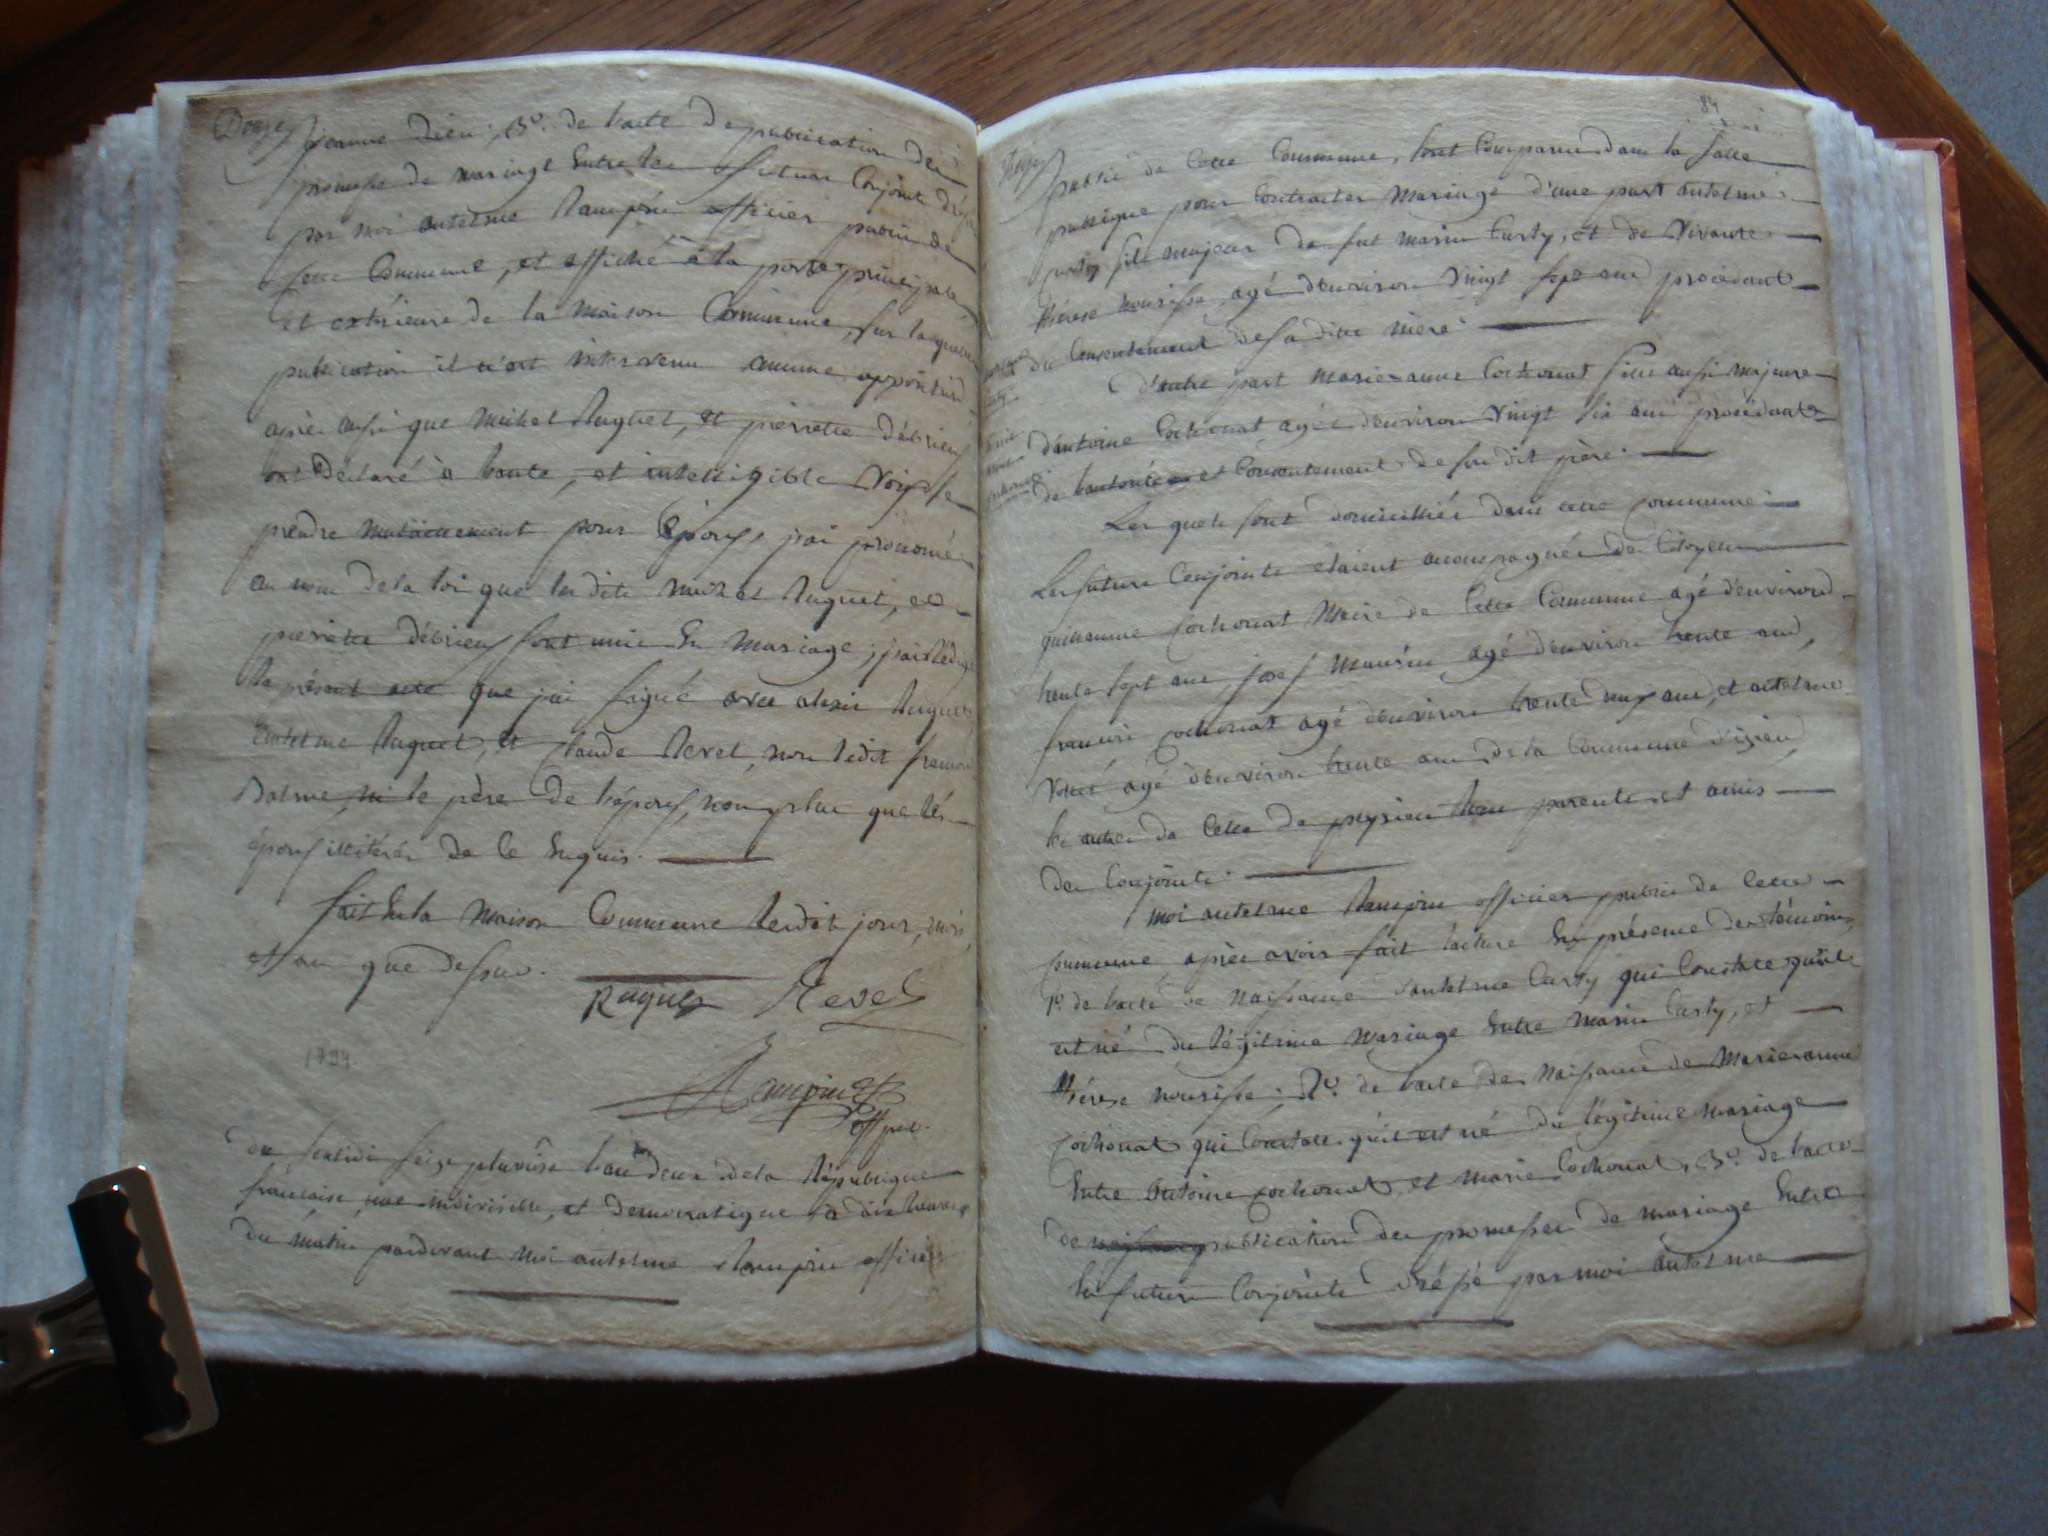 Douze
jeanne Dieu; 3º. de l'acte de publication des
promesse de mariage Entre les futurs Conjoint dréssé
par moi antelme Rampin officier public de
cette Commune, et affiché à la porte principale
et extérieure de la maison Commune, sur laquelle
publication il n'est intervenu aucune opposition
après aussi que michel Ruguet, et pierrette débrieux
ont déclaré à haute, et intelligible voix se
prendre mutuellement pour Epoux, j'ai prononcé
au nom de la loi que les dits michel Ruguet, et
pierrette débrieux sont unis En mariage; j'ai Rédigé
le présent acte que j'ai signé avec alexis Ruguet,
Entelme Ruguet, et Claude Revel, non ledit
Dalme, ni le père de l'époux, non plus que lés
époux illitérés de ce Enquis.
fait En la maison Commune lesdits jour, mois,
et an que dessus.
Ruguet Revel
1794
Rampin
off pub.
du sextidi seize pluviôse l'an deux de la République
francaise, une indivisible, et democratique à dix heures
du matin pardevant moi antelme Rampin officier
84
treize
public de cette Commune, sont Comparus dans la salle
publique pour Contracter mariage d'une part antelme
Curty fils majeur de fut marin Curty, et de vivante
thérese nourisse, agé d'environ vingt sept ans procédant
du Consentement de sa dite mère.
D'autre part marieanne Cochonat fille aussi majeure
d'antoine Cochonat agée d'environ vingt six ans procédant
de l'autorité et Consentement de son dit père.
Les quels sont domicilliés dans cette commune.
Les futurs Conjoints étaient accompagnés des Citoyens
guillaume Cochonat Maire de Cette Commune agé d'environ
trente sept ans, josef Maurin agé d'environ trente ans,
francois Cochonat agé d'environ trente deux ans, et antelme
agé d'environ trente ans de la Commune d'izieu,
les autres de Cette de peyrieu tous parents et amis
des Conjoints.
moi antelme Rampin officier public de cette
commune, après avoir fait lecture En présence des témoins
1º. de l'acte de Naissance d'antelme Curty qui Constate qu'il
est né du légitime mariage Entre marin Curty, et
thérese nourisse; 2º. de l'acte de Naissance de Marieanne
Cochonat qui Constate qu'il est né du légitime mariage
Entre Antoine Cochonat, et marie Cochonat, 3º. de l'acte
de publication des promesses de mariage Entre
les futurs Conjoints dréssé par moi antelme